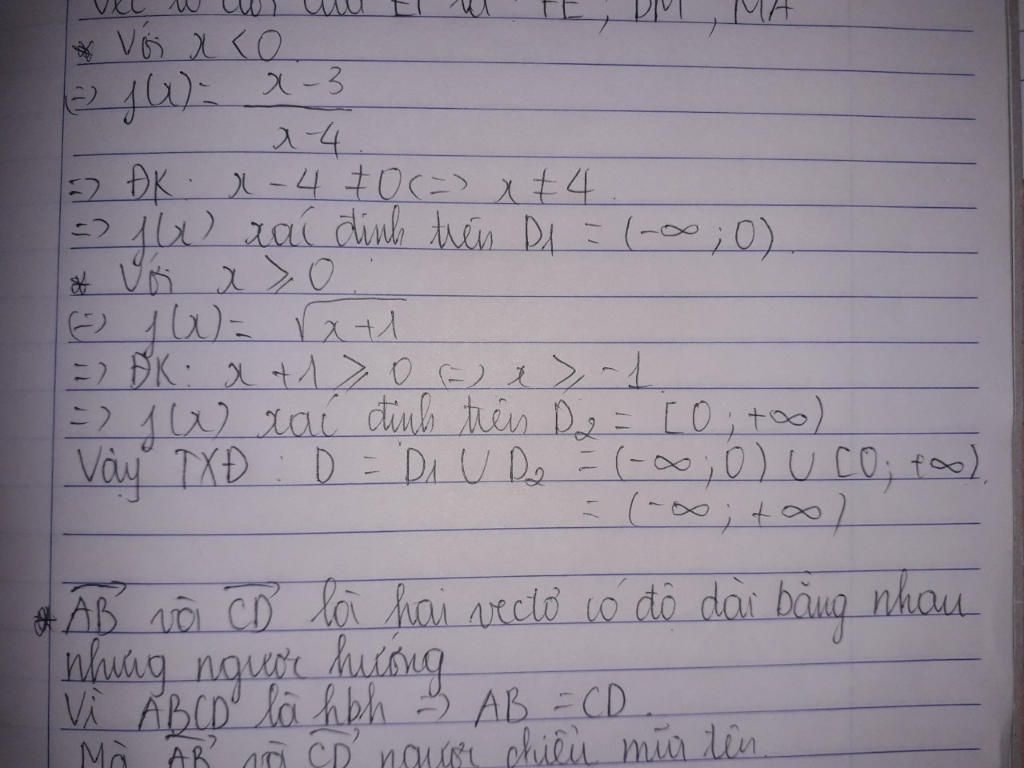 Véc tơ đối của EF là FE, DM, MA
* Với x < 0
(=) f(x) = x - 3
x - 4
=> ĐK: x - 4 ≠ 0 <=> x ≠ 4.
=> f(x) xác định trên D1 = (-∞; 0)
* Với x ≥ 0
(=) f(x) = √x+1
=> ĐK: x + 1 ≥ 0 (=) x ≥ -1
=> f(x) xác định trên D2 = [0; +∞)
Vậy TXĐ: D = D1 ∪ D2 = (-∞; 0) ∪ [0; +∞)
= (-∞; +∞)
* AB và CD là hai vectơ có độ dài bằng nhau
nhưng ngược hướng
Vì ABCD là hbh => AB = CD.
Mà AB và CD ngược chiều mũi tên